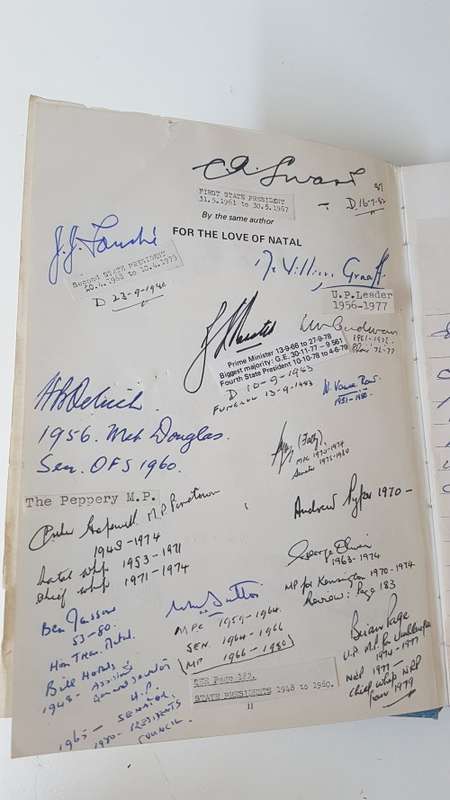 C R Swart
FIRST STATE PRESIDENT
31.5.1961 to 30.5.1967
D 16-7-82
By the same author
FOR THE LOVE OF NATAL
J. J. Fouché
Second STATE PRESIDENT
10.4.1968 to 10.4.1975
D 23-9-1980
De Villiers Graaff.
U.P.Leader
1956-1977
Prime Minister 13-9-66 to 27-9-78
Biggest majority: G.E. 30-11-77 – 9 561
Fourth State President 10-10-78 to 4-6-79
D 10-9-1983
FUNERAL 13-9-1983
1956. Met Douglas.
Sen. OFS 1960.
The Peppery M.P.
M.P. Pinetown
1948-1974
Natal Whip 1953-1971
Chief Whip 1971-1974
Andrew Pyper 1970-
1963-1974
MP for Kensington 1970-1974
Review: Page 183
53-80.
Hon. Tres. Natal.
MPC 1959-1964.
SEN. 1964-1966
MP 1966-1980
Brian Page
1974-1977
NRP 1977-
Chief Whip NRP
1948- Assistant
General Secretary
U.P.
1965- SENATOR.
1980- PRESIDENTS
COUNCIL.
SEE Page 183.
STATE PRESIDENTS 1948 to 1980.
11